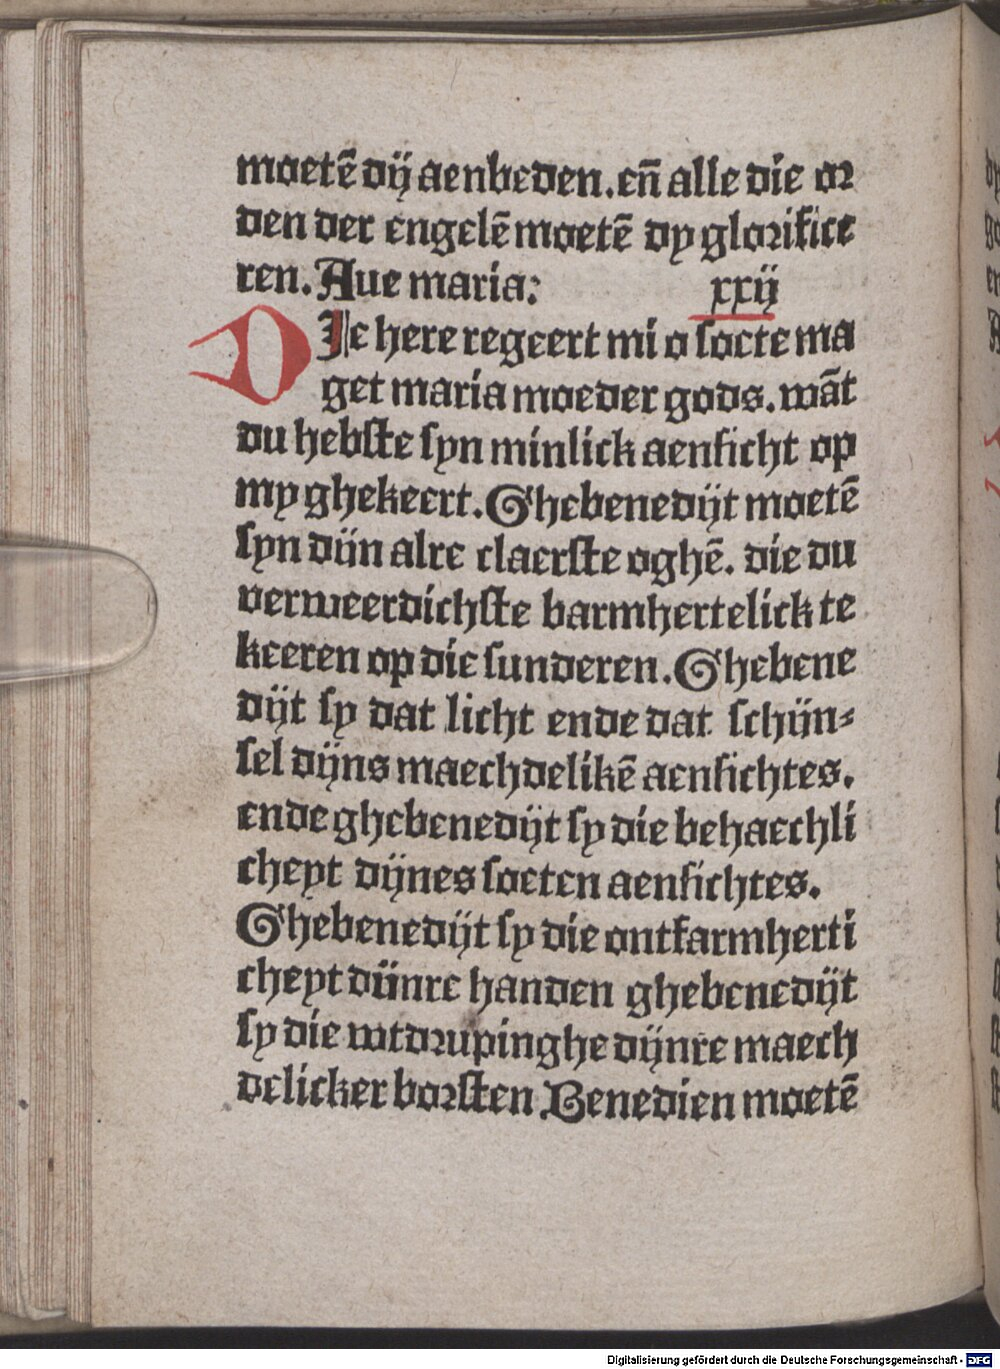 moetē dij aenbeden. eñ alle die or
den der engelē moetē dy glorifice
ren. Aue maria: xxij
DIe here regeert mi o soete ma
get maria moeder gods. wāt
du hebste syn minlick aensicht op
my ghekeert. Ghebenedijt moetē
syn dijn alre claerste oghē. die du
verweerdichste barmhertelick te
keeren op die sunderen. Ghebene
dijt sy dat licht ende dat schijn⸗
sel dijns maechdelikē aensichtes.
ende ghebenedijt sy die behaechli
cheyt dijnes soeten aensichtes.
Ghebenedijt sy die ontfarmherti
cheyt dijnre handen ghebenedijt
sy die wtdrupinghe dijnre maech
delicker borsten Benedien moetē
Digitalisierung gefördert durch die Deutsche Forschungsgemeinschaft - DFG